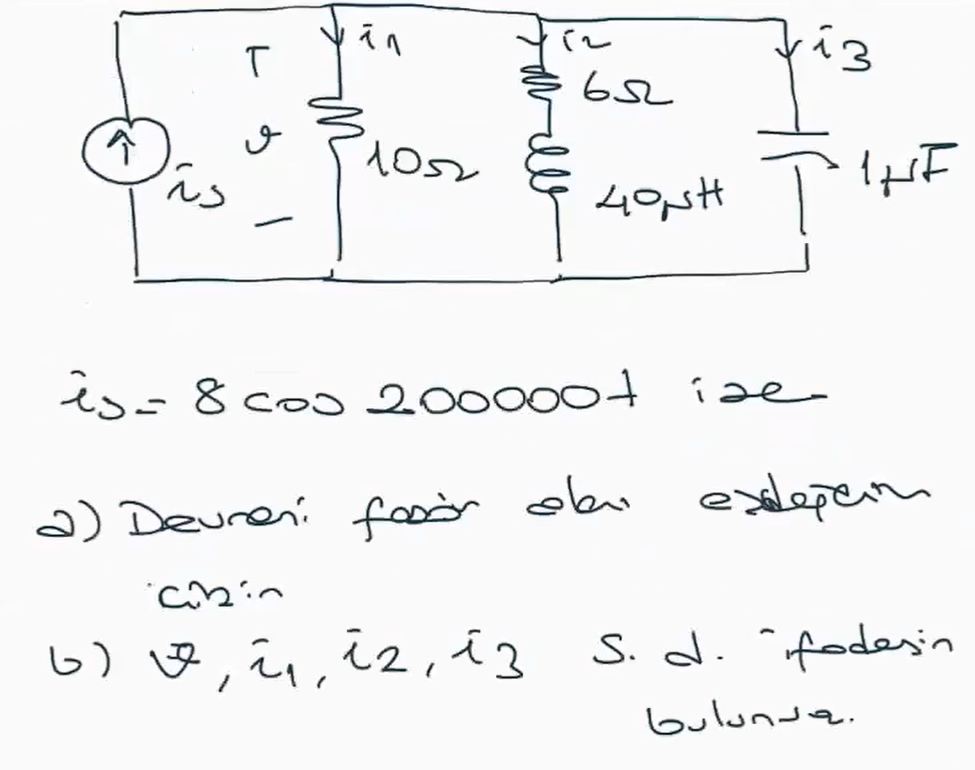 i1 i2 i3
6Ω
is + v − 10Ω 40μH 1μF
is = 8 cos 200000t ise
a) Devreni fasör alanı eşdeğerini
çizin
b) v, i1, i2, i3 s.d. ifadesin
bulunuz.